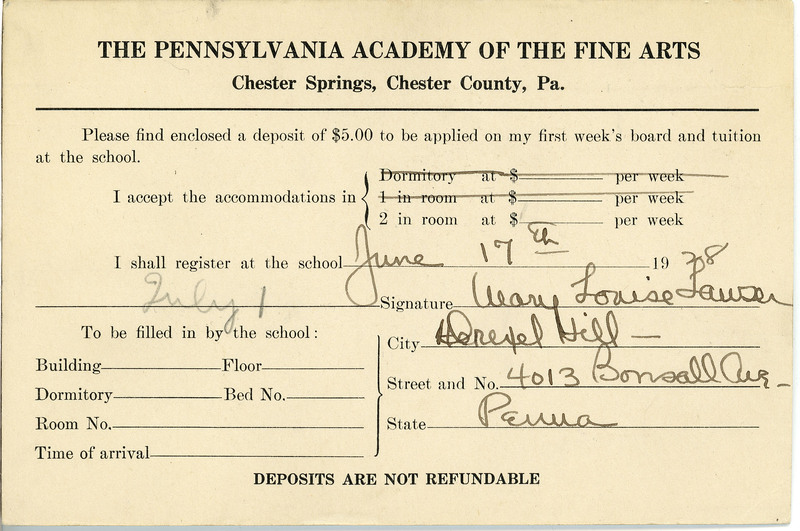 THE PENNSYLVANIA ACADEMY OF THE FINE ARTS
Chester Springs, Chester County, Pa.
Please find enclosed a deposit of $5.00 to be applied on my first week's board and tuition
at the school.
I accept the accommodations in
Dormitory at $ per week
1 in room at $ per week
2 in room at $ per week
I shall register at the school June 17th 1938
July 1
Signature Mary Louise Lawser
To be filled in by the school:
City Drexel Hill —
Building Floor
Street and No. 4013 Bonsall Ave -
Dormitory Bed No.
Room No.
State Penna
Time of arrival
DEPOSITS ARE NOT REFUNDABLE